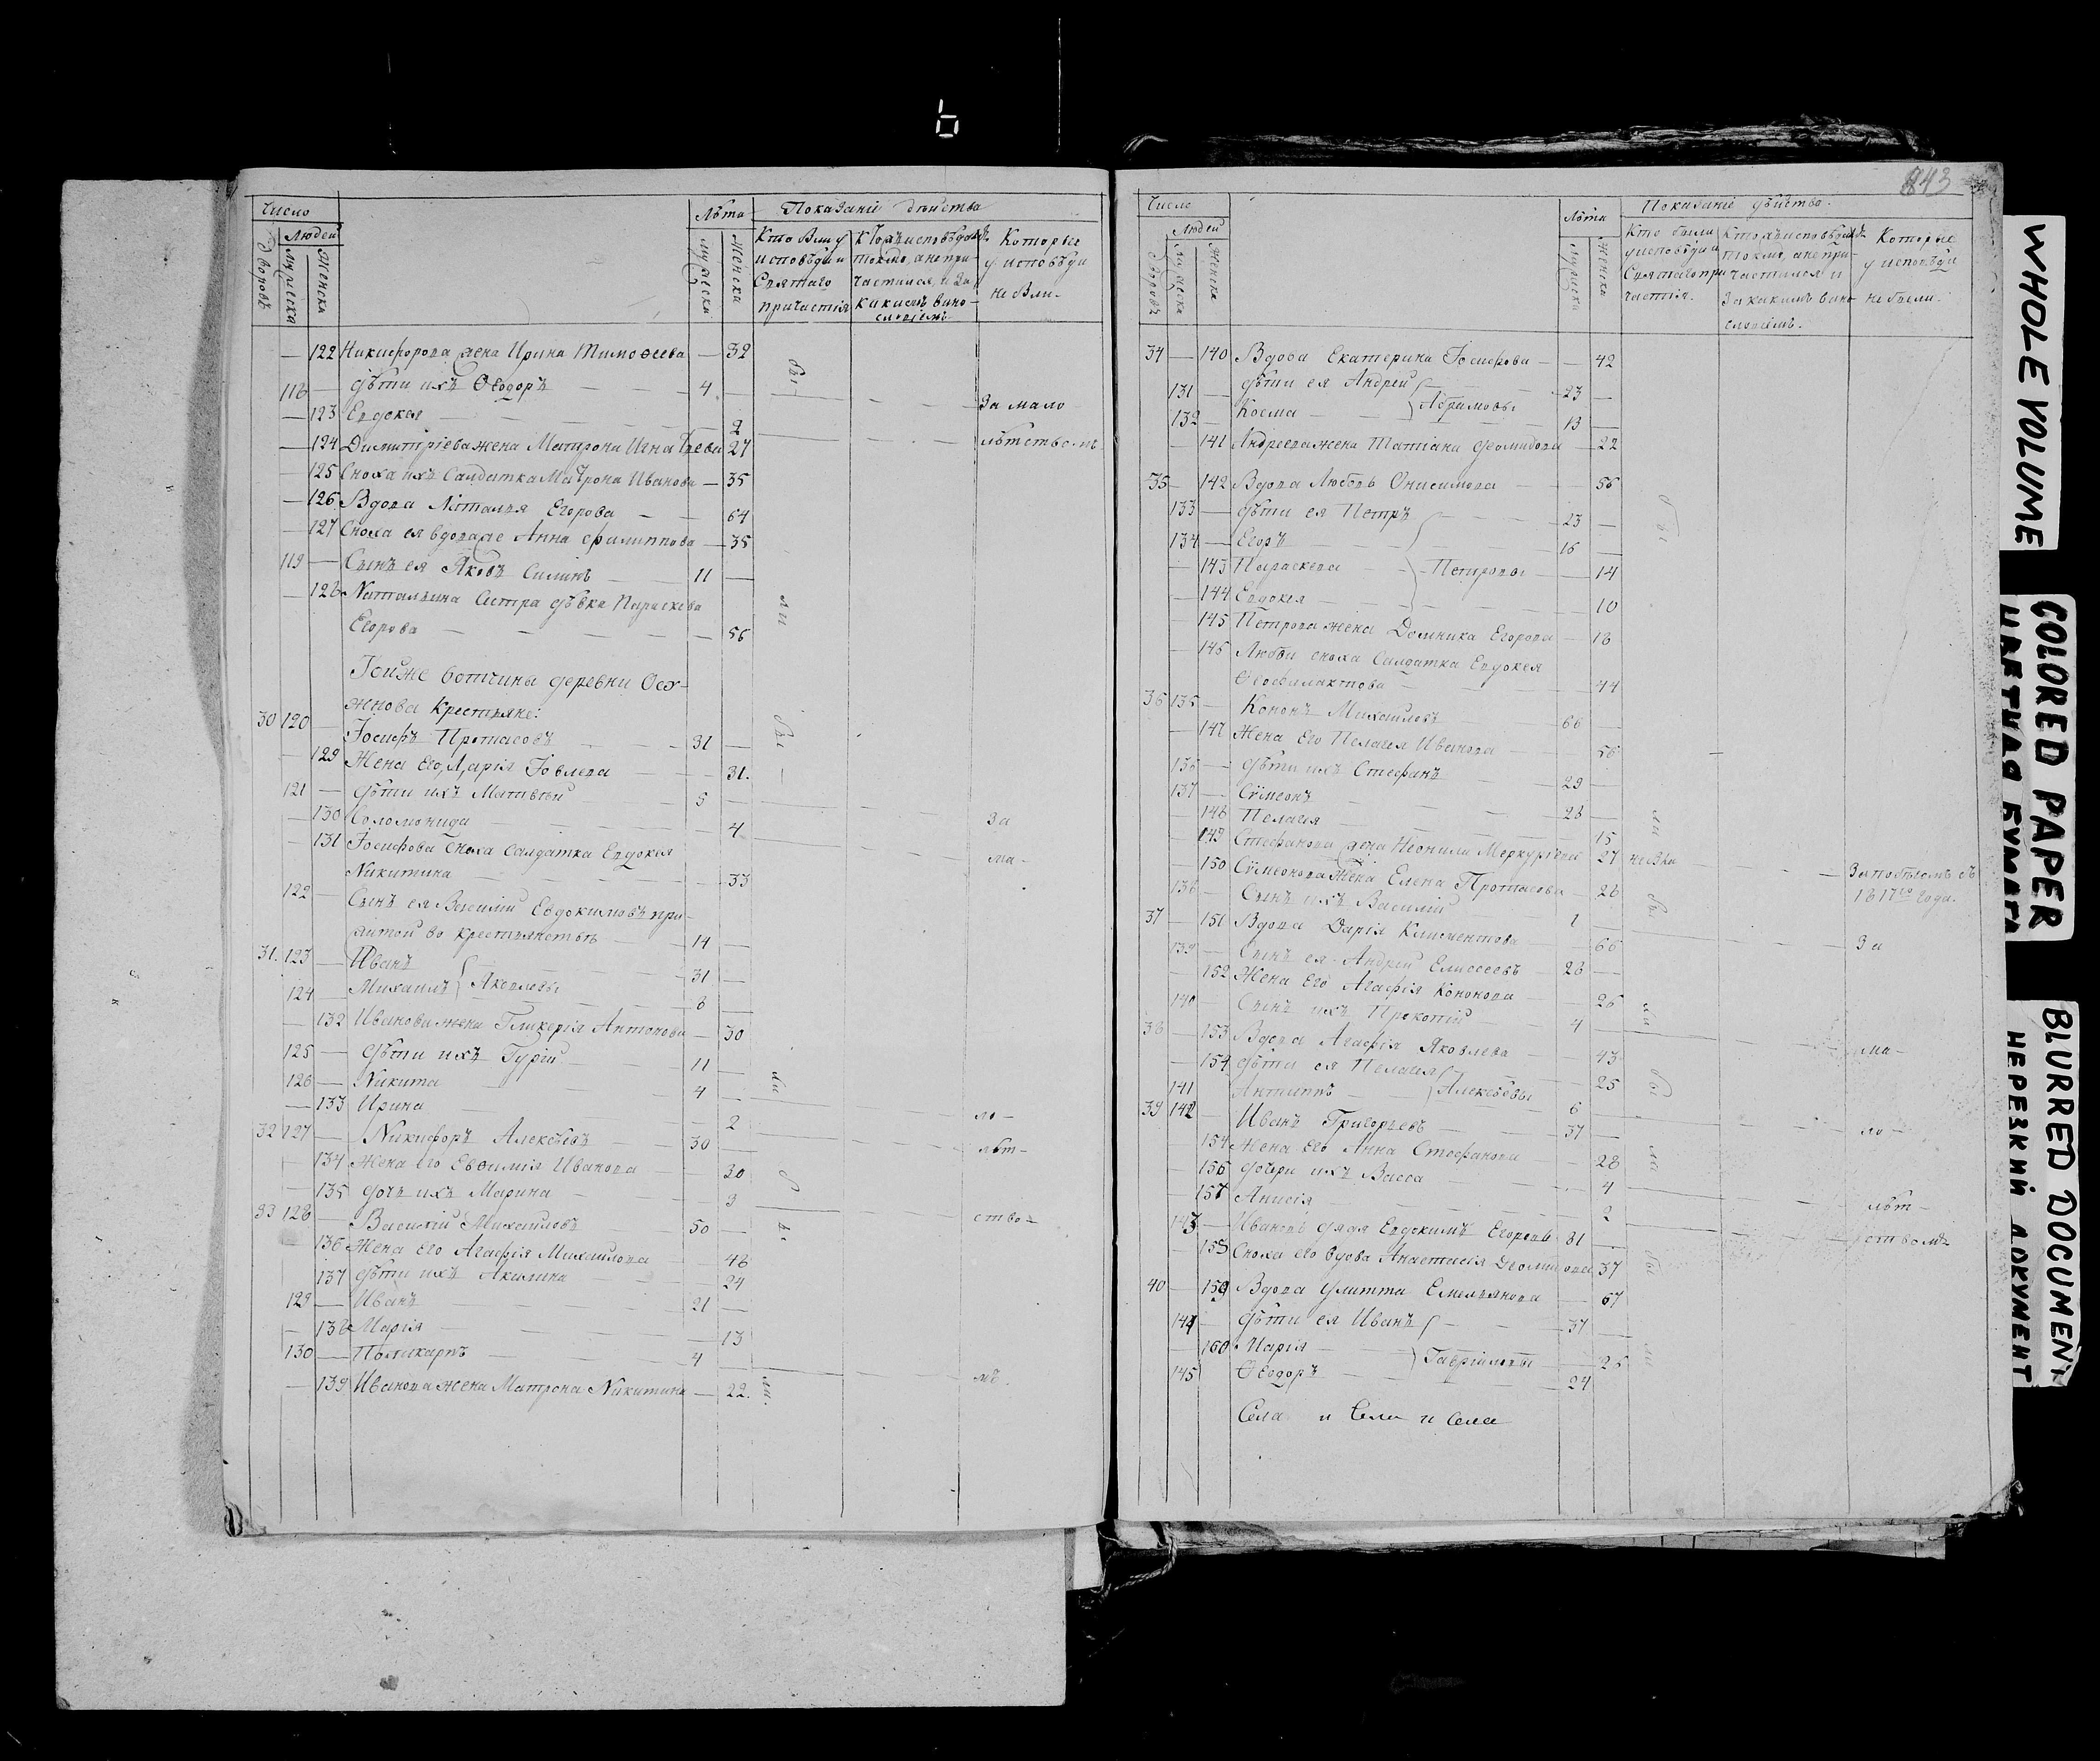 843
Число
Людей
Дворовъ
Мужеска
Женска
Лѣта
Мужеска
Женска
Показаніе дѣйства
Кто Был у
исповѣди и
Святаго
причастія
токмо, а не при-
частился, и за
какимъ вино-
словіемъ
Которые
у исповѣди
не были
— 122 Никифорова жена Ирина Тимоѳеева — 32
118 — дѣти ихъ Ѳеодоръ 4 —
— 123 Евдокея 2 За мало
— 124 Димитріева жена Матрона Игнатьева 27 лѣтствомъ
— 125 Сноха ихъ Салдатка Матрона Иванова — 35
— 126 Вдова Наталья Егорова 64
— 127 Сноха ея вдова же Анна Филиппова — 35
119 — Сынъ ея Яковъ Силинъ 11 —
— 128 Натальина Сестра дѣвка Параскева
Егорова — 56
Тойже вотчины деревни
Крестьяне:
30 120 Іосифъ Протасовъ 31 —
— 129 Жена его Марія Іовлева 31.
121 — дѣти ихъ Матвѣй 5 —
130 Соломонида 4 За
131 Іосифова Сноха Салдатка Евдокея
Никитина 33 ма-
122 Сынъ ея Василій Евдокимовъ при-
нятой во крестьянствѣ 14 —
31. 123 — Иванъ 31 —
124 — Михаилъ } Яковлевы 8 —
— 132 Иванова жена Гликерія Антонова — 30
125 — дѣти ихъ Гурій 11 —
126 — Никита 4 —
— 133 Ирина 2 ло-
32 127 — Никифоръ Алексѣевъ 30 —
— 134 Жена его Евѳимія Иванова 30 лѣт-
— 135 дочь ихъ Марина 3
33 128 — Василій Михайловъ 50 — ство-
136 Жена его Агафія Михайлова 48
137 дѣти ихъ Акилина 24
129 — Иванъ 21 —
— 138 Марія 13
130 — Поликарпъ 4 —
— 139 Иванова жена Матрона Никитина — 22. мъ.
Число
Людей
Дворовъ
Мужеска
Женска
Лѣта
Мужеска
Женска
Показаніе дѣйства.
Кто были
у исповѣди и
Святаго при
частія.
токмо, а не при-
частился и
За какимъ вино
словіемъ.
Которые
у исповѣди
не были.
34 — 140 Вдова Екатерина Іосифова — 42
131 — дѣти ея Андрей 23 —
132 — Косма } Абрамовы 13 —
141 Андреева жена Татіана Деомидова — 22
35 — 142 Вдова Любовь Онисимова 56
133 — дѣти ея Петръ 23 —
134 — Егоръ 16 —
— 143 Параскева } Петровы 14
— 144 Евдокея 10
— 145 Петрова жена Домника Егорова 18
— 146 Любви сноха Салдатка Евдокея
Ѳеофилактова 44
36 135 — Кононъ Михайловъ 66 —
— 147 Жена его Пелагея Иванова 58
136 — дѣти ихъ Стефанъ 29 —
137 — Сѵмеонъ 23 —
— 148 Пелагея 15
— 149 Стефанова жена Неонила Меркуріева 27
— 150 Сѵмеонова жена Елена Протасова 26 За побѣгомъ съ
138 — Сынъ ихъ Василій 1 1817го года.
37 — 151 Вдова Дарія Климентова 66 За
139 — Сынъ ея Андрей Елисеевъ 28 —
— 152 Жена его Агафія Кононова 26
140 — Сынъ ихъ Прокопій 4 —
38 — 153 Вдова Агафія Яковлева 43 ма-
— 154 дѣти ея Пелагея 25
141 Антипъ } Алексѣевы 6 —
39 142 — Иванъ Григорьевъ 37 — ло-
154 Жена его Анна Стефанова 28
156 дочери ихъ Васса 4
157 Анисія 2 лѣт-
143 — Ивановъ дядя Евдокимъ Егоровъ 81 — ствомъ
158 Сноха его вдова Анастасія Деомидова 37
40 — 159 Вдова Улитта Емельянова 67
144 — дѣти ея Иванъ 37 —
— 160 Марія } Гавріиловы 26
145 Ѳеодоръ 24
Села и Села и Села
WHOLE VOLUME
COLORED PAPER
ЦВЕТНАЯ БУМАГА
BLURRED DOCUMENT
НЕРЕЗКИЙ ДОКУМЕНТ